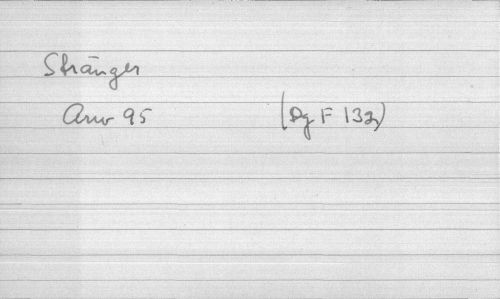 Stränger
Arw 95 (Dg F 132)